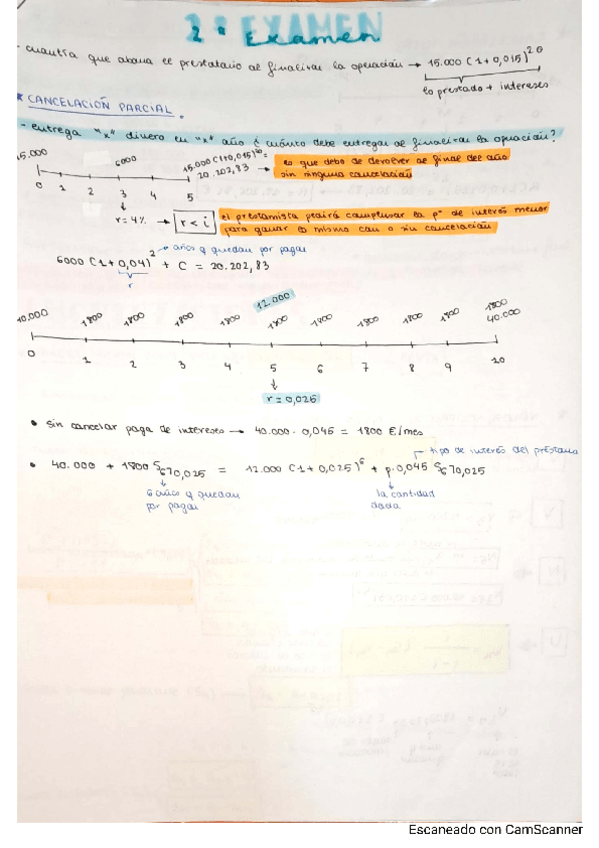 2º EXAMEN
- cuantía que abona el prestatario al finalizar la operación → 15.000 (1+0,015)²⁰
lo prestado + intereses
* CANCELACIÓN PARCIAL.
- entrega "x" dinero en "x" año ¿ cuánto debe entregar al finalizar la operación?
15.000 6000 15.000 (1+0,015)²⁰=
20.202,83 → lo que debo de devolver al final del año
sin ninguna cancelación
0 1 2 3 4 5
r = 4% → r < i el prestamista pedirá compensar la pª de interés menor
para ganar lo mismo con o sin cancelación
→ años q quedan por pagar
6000 (1+0,04)² + C = 20.202,83
r
12.000
40.000 1800 1800 1800 1800 1800 1800 1800 1800 1800 1800
40.000
0 1 2 3 4 5 6 7 8 9 10
r = 0,025
• Sin cancelar paga de intereses → 40.000 · 0,045 = 1800 €/mes
→ tipo de interés del préstamo
• 40.000 + 1800 S₆⁊0,025 = 12.000 (1+0,025)⁶ + p·0,045 S₆⁊0,025
6 años q quedan
por pagar
la cantidad
dada
Escaneado con CamScanner